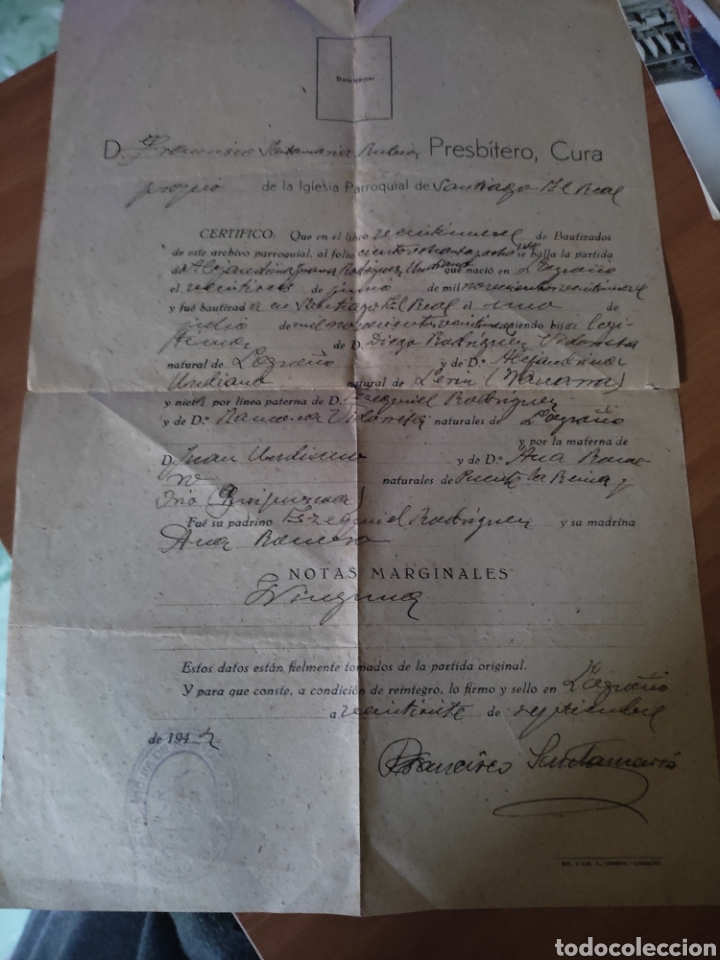 Reintégrese
D. Francisco Santamaría Rubio, Presbítero, Cura
propio de la Iglesia Parroquial de Santiago El Real
CERTIFICO: Que en el libro veintinueve de Bautizados
de este archivo parroquial, al folio ciento se halla la partida
de Alejandrina Juana Rodríguez Undiano que nació en Logroño
el veintitres de junio de mil novecientos veintinueve
y fué bautizad a en Santiago El Real el uno de
julio de mil novecientos siendo hij a legí-
tima de D. Diego Rodríguez
natural de Logroño y de D.ª Alejandrina
Undiano natural de Lerín (Navarra)
y niet a por línea paterna de D. Ezequiel Rodríguez
y de D.ª Ramona naturales de Logroño
y por la materna de
D. Juan Undiano y de D.ª Ana Rome-
ro naturales de Puente la Reina y
(Guipúzcoa)
Fué su padrino Ezequiel Rodríguez y su madrina
Ana Romero
NOTAS MARGINALES
Ninguna
Estos datos están fielmente tomados de la partida original.
Y para que conste, a condición de reintegro, lo firmo y sello en Logroño
a de septiembre
de 194
Francisco Santamaría
todocoleccion